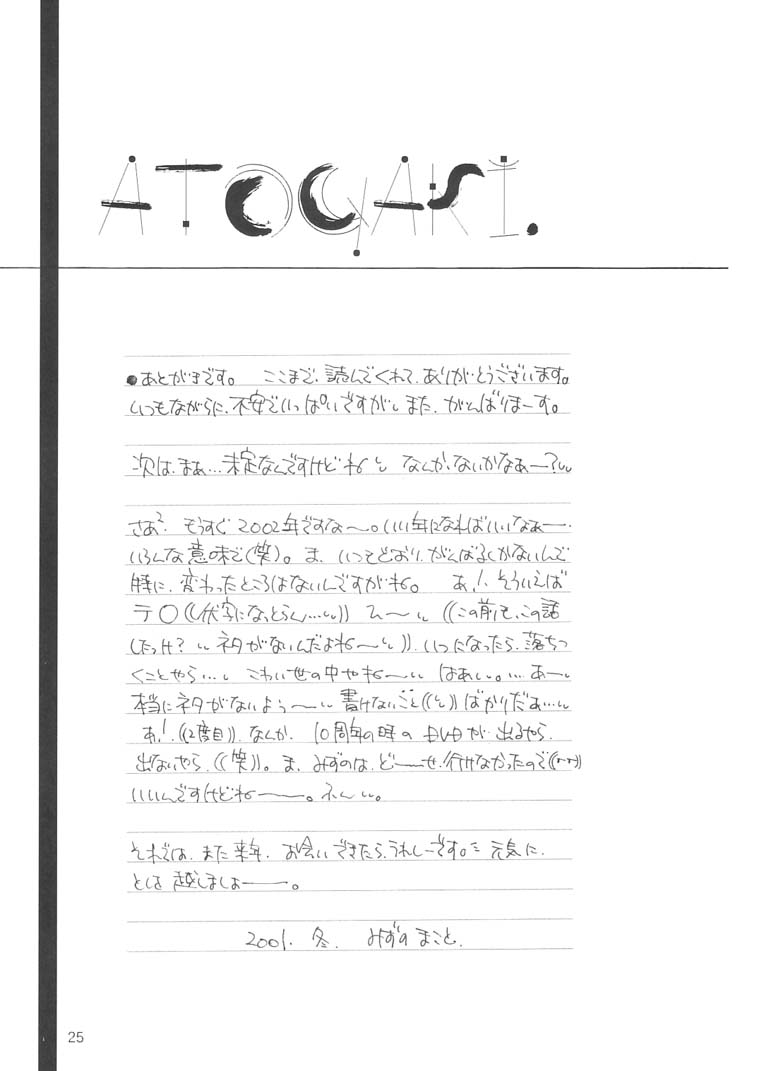 ATOGAKI.
●あとがきです。 ここまで、読んでくれて、ありがとうございます。
いつもながらに、不安でいっぱいですが、また、がんばりまーす。
次は、まぁ…未定なんですけどね なんか、ないかなぁー?
さぁ² もうすぐ2002年ですな〜。いい年になればいいなぁー
いろんな意味で(笑)。ま、いつもどおり、がんばるしかないんで
特に、変わったところはないんですがね。 あ!、そういえば
テ○((伏字になっとらん…))ひ〜 ((この前も、この話
したっけ? ネタがないんだよね〜)).いつになったら、落ちつ
くことやら… こわい世の中やね〜 はぁ。…あー
本当にネタがないよぅ〜 書けないこと(( ))ばかりだぁ…
あ!((2度目))、なんか、10周年の時の が、出るやら、
出ないやら、((笑))。ま、みずのは、どーせ、行けなかったので
いいんですけどねー。ふん。
それでは、また来年、お会いできたら、うれしーです。 元気に、
とし 越しましょー。
2001. 冬. みずの まこと.
25